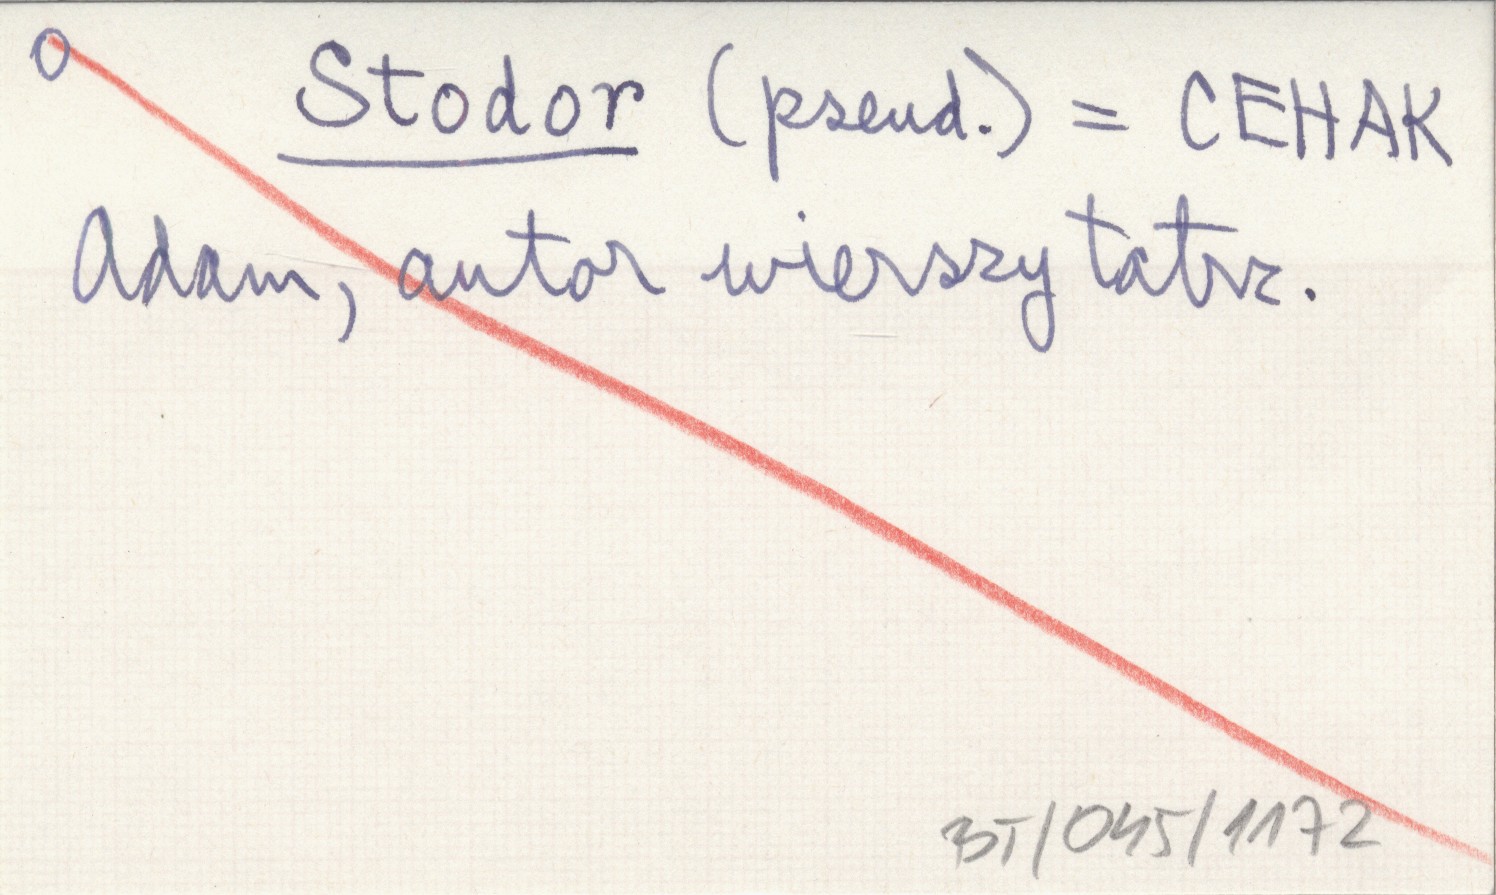 O Stodor (pseud.) = CEHAK
Adam, autor wierszy tatrz.
BT/045/1172